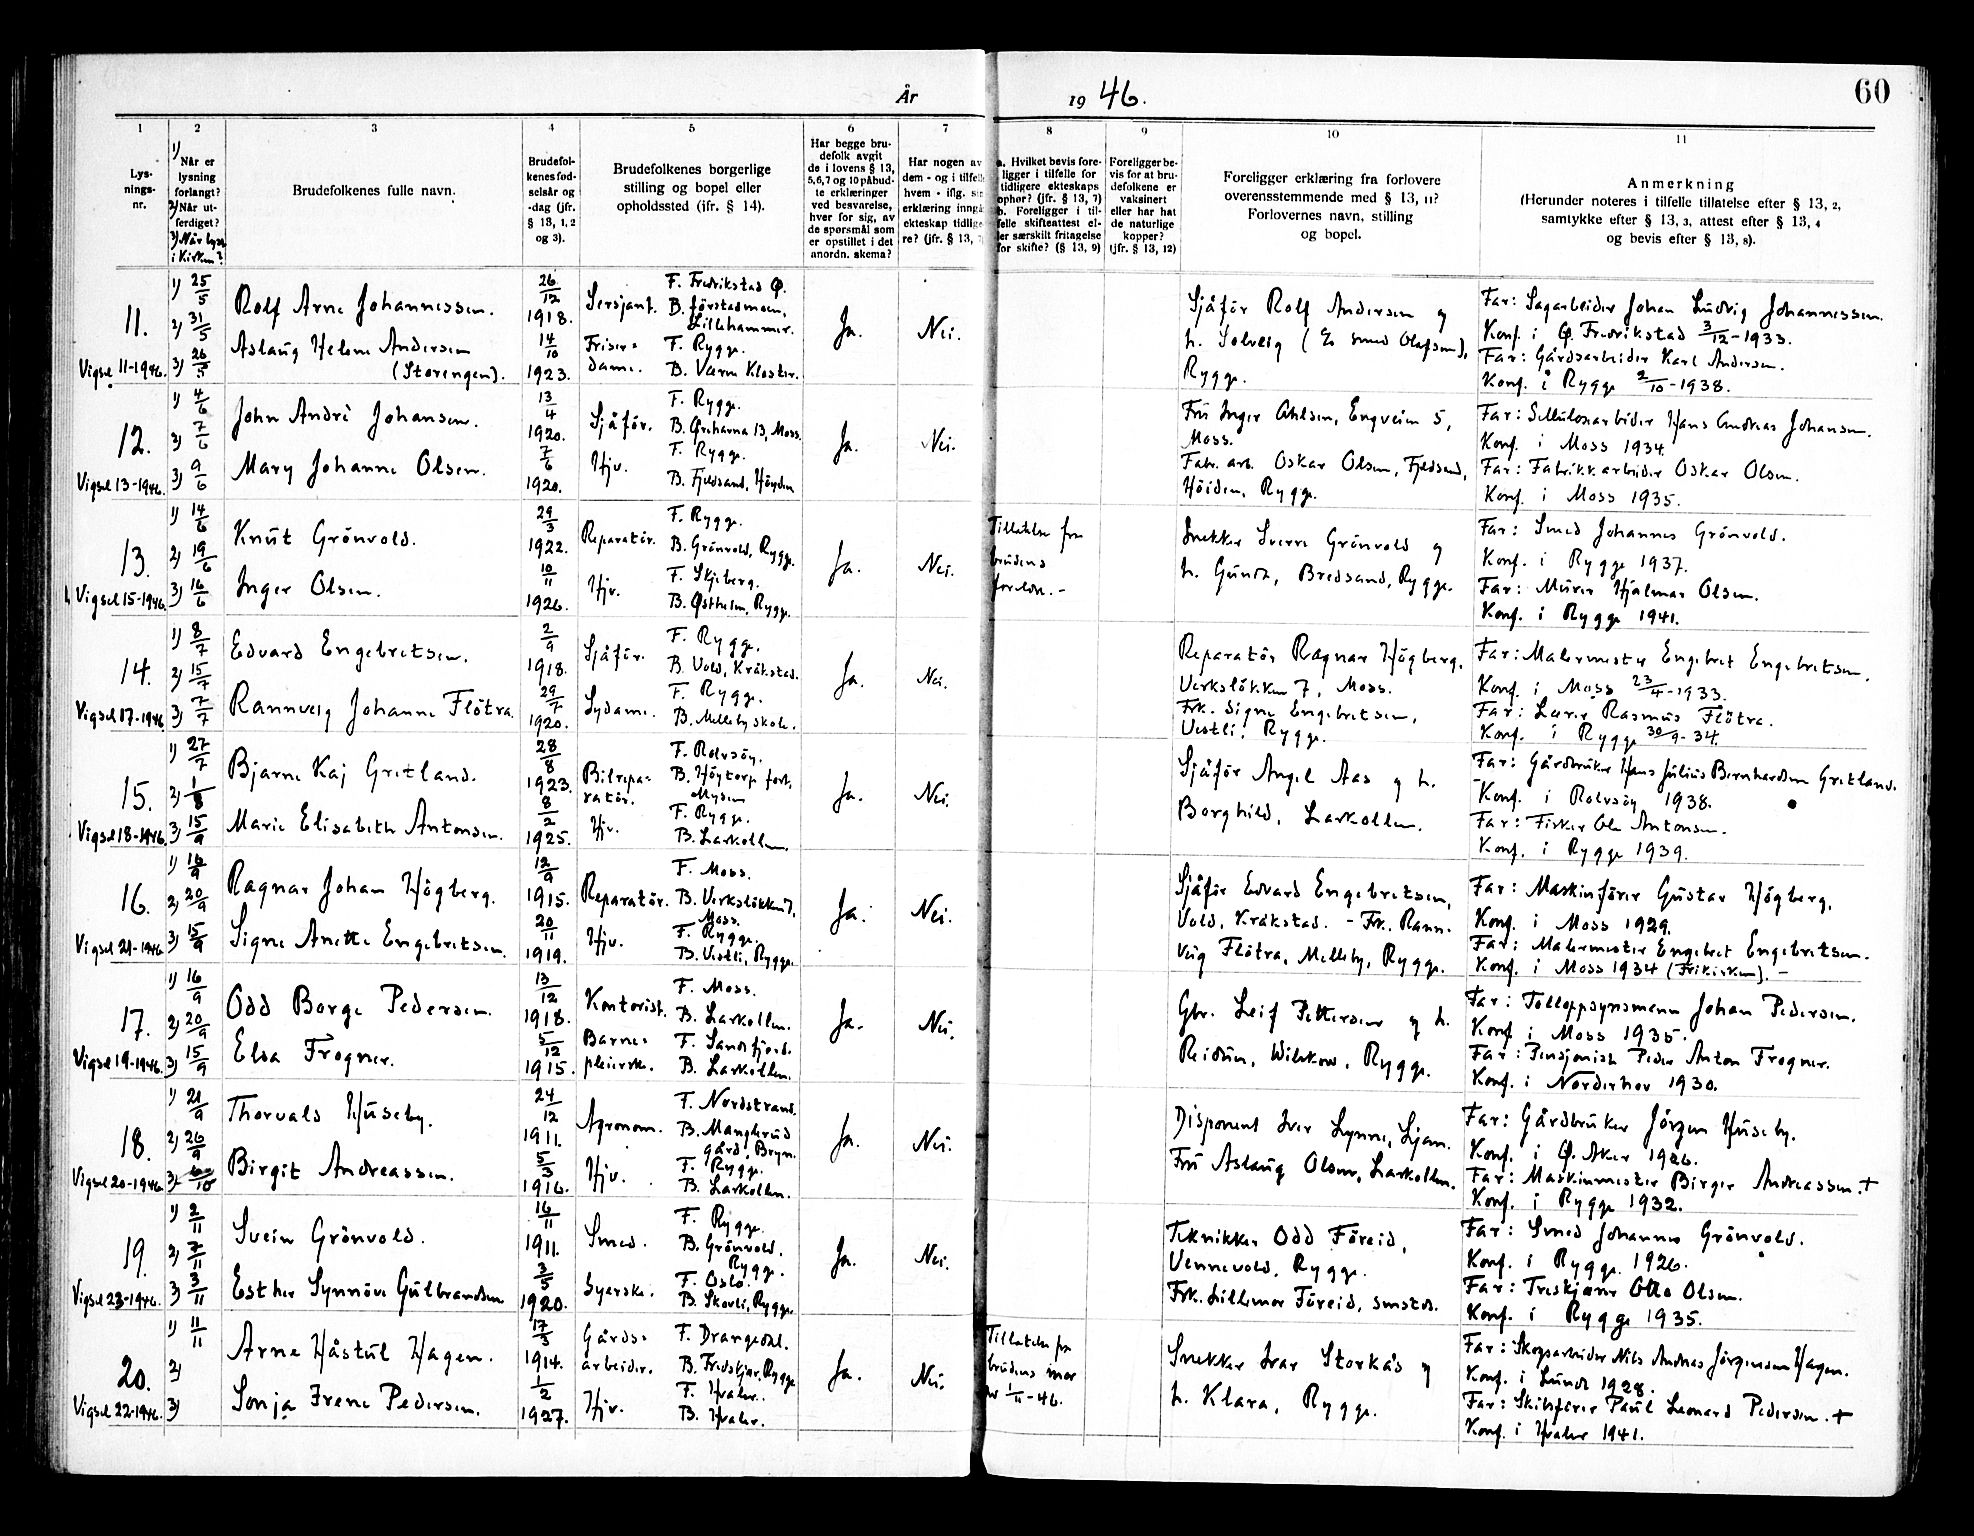 År 1946.
60
1 2 3 4 5 6 7 8 9 10 11
Lys-
nings-
nr.
1) Når er
lysning
forlangt?
2) Når ut-
ferdiget?
3) Når lyst
i kirken?
Brudefolkenes fulle navn.
Brudefol-
kenes fød-
selsår og
-dag (jfr.
§ 13, 1, 2
og 3).
Brudefolkenes borgerlige
stilling og bopel eller
opholdssted (jfr. § 14).
Har begge bru-
defolk avgit
de i lovens § 13,
5, 6, 7 og 10 påbud-
te erklæringer
ved besvarelse,
hver for sig, av
de spørsmål som
er opstillet i det
anordn. skema?
Har nogen av
dem - og i tilfelle
hvem - iflg. sin
erklæring inngå
ekteskap tidlige-
re? (jfr. § 13,
a. Hvilket bevis fore-
ligger i tilfelle for
tidligere ekteskaps
ophør? (jfr. § 13, 7)
b. Foreligger i til-
felle skifteattest el-
ler særskilt fritagelse
for skifte? (§ 13, 9)
Foreligger be-
vis for at bru-
defolkene er
vaksinert
eller har hat
de naturlige
kopper?
(jfr. § 13, 12)
Foreligger erklæring fra forlovere
overensstemmende med § 13, 11?
Forlovernes navn, stilling
og bopel.
Anmerkning
(Herunder noteres i tilfelle tillatelse efter § 13, 2,
samtykke efter § 13, 3, attest efter § 13, 4
og bevis efter § 13, 8).
11.
Vigsel 11-1946.
1) 25/5
2) 31/5
3) 26/5
Rolf Arne Johannessen.
Aslaug Helene Andersen
(Storengen).
26/12
1918.
14/10
1923.
Sersjant.
F. Fredrikstad Ø.
B. Jörstadmoen,
Lillehammer.
Friser=
dame.
F. Rygge.
B. Værne Kloster.
Ja.
Nei.
Sjåför Rolf Andersen og
h. Solveig
Rygge.
Far: Sagarbeider Johan Ludvig Johannessen.
Konf. i Ø. Fredrikstad 3/12-1933.
Far: Gårdsarbeider Karl Andersen.
Konf. i Rygge 2/10-1938.
12.
Vigsel 13-1946.
1) 4/6
2) 7/6
3) 9/6
John André Johansen.
Mary Johanne Olsen.
13/4
1920.
7/6
1920.
Sjåför.
F. Rygge.
B. Ørehavna 13, Moss.
Hjv.
F. Rygge.
B. Fjeldsand, Höyden
Ja.
Nei.
Fru Inger Ohlsen, Engveien 5,
Moss.
Fabr. arb. Oskar Olsen, Fjeldsand,
Höiden, Rygge.
Far: Sellulosearbeider Hans Andreas Johansen.
Konf. i Moss 1934.
Far: Fabrikkarbeider Oskar Olsen.
Konf. i Moss 1935.
13.
Vigsel 15-1946.
1) 14/6
2) 19/6
3) 16/6
Knut Grönvold.
Inger Olsen.
29/3
1922.
10/11
1926.
Reparatör.
F. Rygge.
B. Grönvold, Rygge.
Hjv.
F. Skjeberg.
B. Østheim, Rygge.
Ja.
Nei.
Tillatelse fra
brudens
foreldre. -
Snekker Sverre Grönvold og
h. Gunda, Bredsand, Rygge.
Far: Smed Johannes Grönvold.
Konf. i Rygge 1937.
Far: Murer Hjalmar Olsen.
Konf. i Rygge 1941.
14.
Vigsel 17-1946
1) 8/7
2) 15/7
3) 7/7
Edvard Engebretsen.
Rannveig Johanne Flötra.
2/9
1918.
29/7
1920.
Sjåför.
F. Rygge.
B. Vold, Kråkstad.
Sydame.
F. Rygge.
B. Melleby skole.
Ja.
Nei.
Reparatör Ragnar Högberg.
Verkslökken 7, Moss.
Frk. Signe Engebretsen,
Vestli, Rygge.
Far: Malermester Engebret Engebretsen.
Konf. i Moss 23/4-1933.
Far: Lærer Rasmus Flötra.
Konf. i Rygge 30/9-34.
15.
Vigsel 18-1946.
1) 27/7
2) 1/8
3) 15/9
Bjarne Kaj Gretland.
Marie Elisabeth Antonsen.
28/8
1923.
8/2
1925.
Bilrepa=
ratör.
F. Rolvsöy.
B. Höytorp fort,
Mysen
Hjv.
F. Rygge.
B. Larkollen.
Ja.
Nei.
Sjåför Angel Aas og h.
Borghild, Larkollen.
Far: Gårdbruker Hans Julius Bernhardsen Gretland.
Konf. i Rolvsöy 1938.
Far: Fisker Ole Antonsen.
Konf. i Rygge 1939.
16.
Vigsel 21-1946
1) 16/9
2) 20/9
3) 15/9
Ragnar Johan Högberg.
Signe Anette Engebretsen.
12/9
1915.
20/11
1919.
Reparatör.
F. Moss.
B. Verkslökken 7,
Moss.
Hjv.
F. Rygge.
B. Vestli, Rygge.
Ja.
Nei.
Sjåför Edvard Engebretsen,
Vold, Kråkstad. - Frk. Rann-
veig Flötra, Melleby, Rygge.
Far: Maskinförer Gustav Högberg.
Konf. i Moss 1929.
Far: Malermester Engebret Engebretsen.
Konf. i Moss 1934 (Frikirken). -
17.
Vigsel 19-1946.
1) 16/9
2) 20/9
3) 15/9
Odd Borge Pedersen.
Elsa Frogner.
13/12
1918.
5/12
1915.
Kontorist.
F. Moss.
B. Larkollen.
Barne=
pleierske.
F. Sandefjord.
B. Larkollen.
Ja.
Nei.
Gbr. Leif Pettersen og h.
Reidun, Wilskow, Rygge.
Far: Tolloppsynsmann Johan Pedersen.
Konf. i Moss 1935.
Far: Pensjonist Peder Anton Frogner.
Konf. i Norderhov 1930.
18.
Vigsel 20-1946
1) 21/9
2) 26/9
3)
Thorvald Huseby.
Birgit Andreassen.
24/12
1911.
5/3
1916.
Agronom.
F. Nordstrand.
B. Manglerud
gård, Bryn.
Hjv.
F. Rygge.
B. Larkollen.
Ja.
Nei.
Disponent Iver Lynne, Ljan.
Fru Aslaug Olsen, Larkollen.
Far: Gårdbruker Jörgen Huseby.
Konf. i Ø. Aker 1926.
Far: Maskinmester Birger Andreassen. +
Konf. i Rygge 1932.
19.
Vigsel 23-1946.
1) 2/11
2) 7/11
3) 3/11
Svein Grönvold.
Esther Synnöve Gulbrandsen
16/11
1911.
3/5
1920.
Smed.
F. Rygge.
B. Grönvold,
Rygge.
Syerske.
F. Oslo.
B. Skovli, Rygge.
Ja.
Nei.
Tekniker Odd Föreid,
Vennevold, Rygge.
Frk. Lillemor Föreid, smstds.
Far: Smed Johannes Grönvold.
Konf. i Rygge 1926.
Far: Treskjærer Otto Olsen.
Konf. i Rygge 1935.
20.
Vigsel 22-1946.
1) 11/11
2)
3)
Arne Håstul Hagen.
Sonja Irene Pedersen.
17/3
1914.
1/2
1927.
Gårds=
arbeider.
F. Drangedal.
B. Fredskjær, Rygge
Hjv.
F. Hvaler.
B. Hvaler.
Ja.
Nei.
Tillatelse fra
brudens mor
av 1/11-46.
Snekker Ivar Storkås og
h. Klara, Rygge.
Far: Skogsarbeider Nils Andreas Jörgensen Hagen.
Konf. i Lunde 1928.
Far: Skibsförer Paul Leonard Pedersen. +
Konf. i Hvaler 1941.